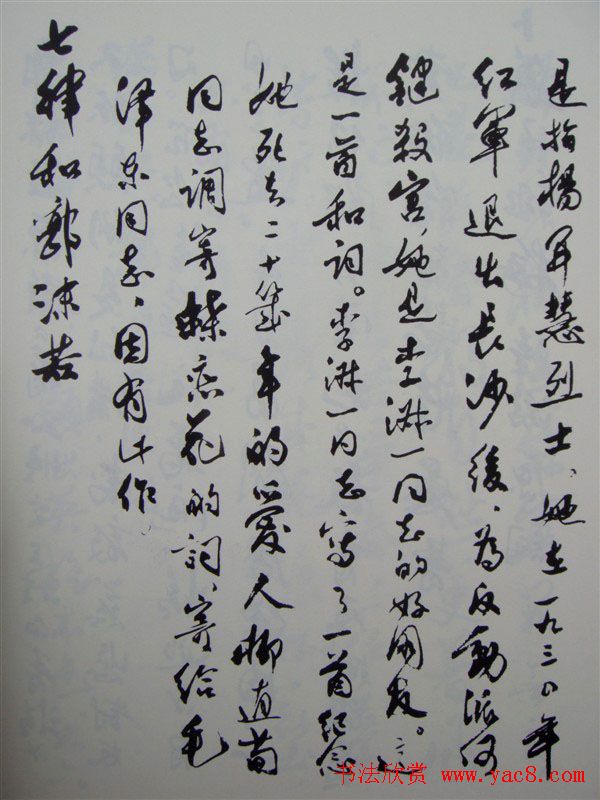 是指楊开慧烈士、她在一九三〇年
红軍退出長沙後、為反動派何
鍵殺害,她是李淑一同志的好朋友。這
是一首和词。李淑一同志寫了一首紀念
她死去二十幾年的愛人柳直荀
同志調寄蝶恋花的詞、寄给毛
澤东同志、因有此作
七律和郭沫若
书法欣赏 www.yac8.com